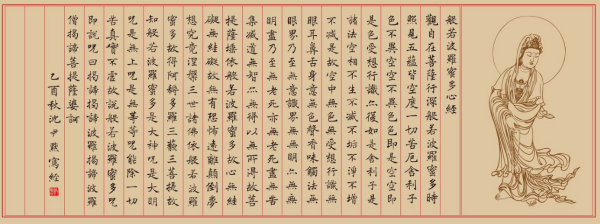 般若波羅蜜多心經
觀自在菩薩行深般若波羅蜜多時
照見五蘊皆空度一切苦厄舍利子
色不異空空不異色色即是空空即
是色受想行識亦復如是舍利子是
諸法空相不生不滅不垢不淨不增
不減是故空中無色無受想行識無
眼耳鼻舌身意無色聲香味觸法無
眼界乃至無意識界無無明亦無無
明盡乃至無老死亦無老死盡無苦
集滅道無智亦無得以無所得故菩
提薩埵依般若波羅蜜多故心無罣
礙無罣礙故無有恐怖遠離顛倒夢
想究竟涅槃三世諸佛依般若波羅
蜜多故得阿耨多羅三藐三菩提故
知般若波羅蜜多是大神咒是大明
咒是無上咒是無等等咒能除一切
苦真實不虛故說般若波羅蜜多咒
即說咒曰揭諦揭諦波羅揭諦波羅
僧揭諦菩提薩婆訶
乙酉秋沈尹默寫經